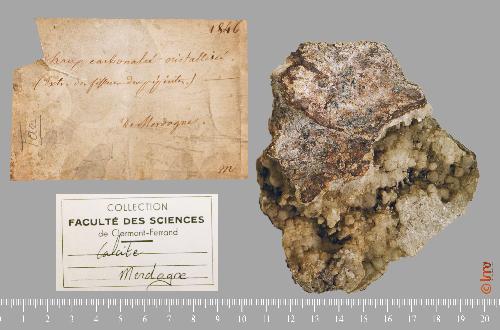 1846
chaux carbonatée cristallisée.
(Extr. des fissures des pépérites.)
de Merdogne.
m
COLLECTION
FACULTÉ DES SCIENCES
de Clermont-Ferrand
Calcite
Merdogne
0 1 2 3 4 5 6 7 8 9 10 11 12 13 14 15 16 17 18 19 20